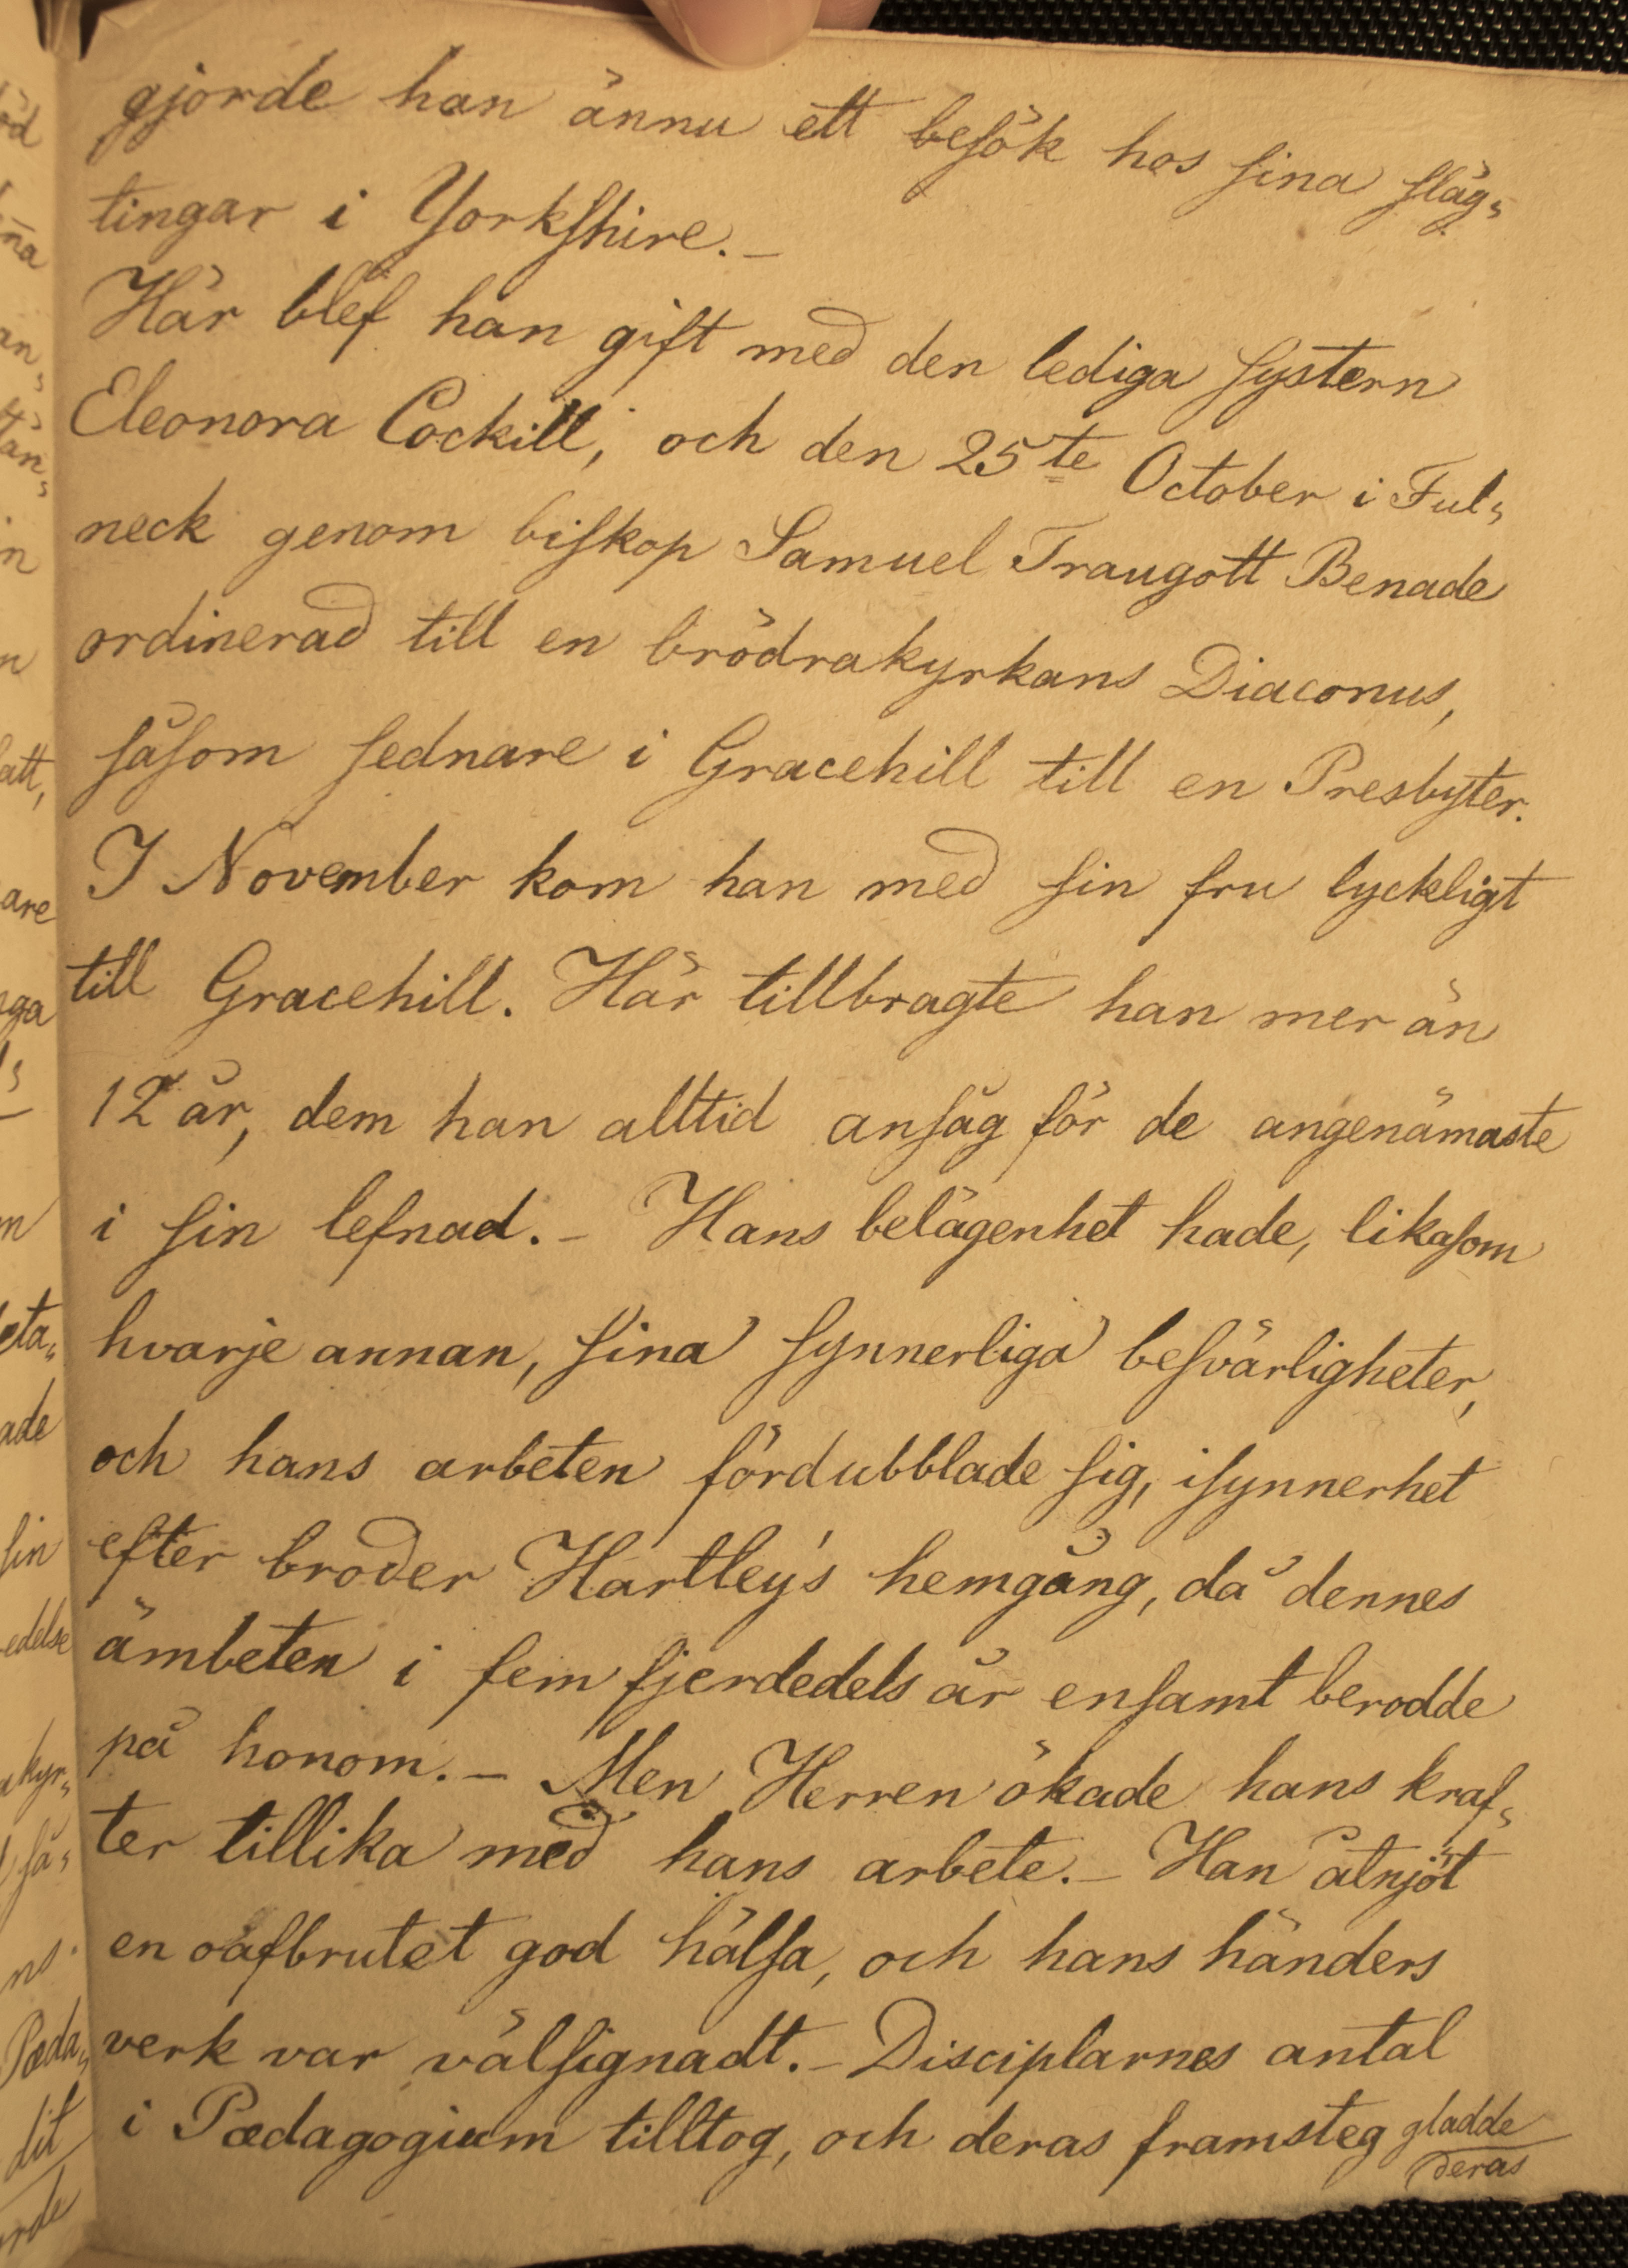 gjorde han ännu ett besök hos sina släg-
tingar i Yorkshire. –
Här blef han gift med den lediga systern
Eleonora Cockill, och den 25te October i Ful-
neck genom biskop Samuel Traugott Benade
ordinerad till en brödrakyrkans Diaconus,
såsom sednare i Gracehill till en Presbyter.
I November kom han med sin fru lyckligt
till Gracehill. Här tillbragte han mer än
12 år, dem han alltid ansåg för de angenämaste
i sin lefnad. – Hans belägenhet hade, likasom
hvarje annan, sina synnerliga besvärligheter,
och hans arbeten fördubblade sig, isynnerhet
efter broder Hartley's hemgång, då dennes
ämbeten i fem fjerdedels år ensamt berodde
på honom. – Men Herren ökade hans kraf-
ter tillika med hans arbete. – Han åtnjöt
en oafbrutet god hälsa, och hans händers
verk var välsignadt. – Disciplarnes antal
i Pædagogium tilltog, och deras framsteg gladde
deras